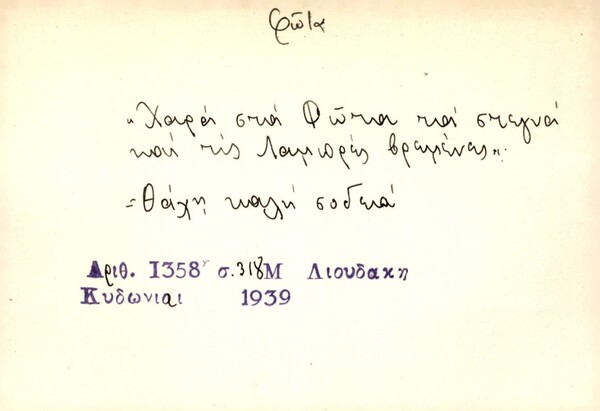 Φῶτα
"Χαρά στά Φῶτα τά στεγνά
καί τίς Λαμπρές βρεμένες".
= Θάχη καλή σοδειά
Αριθ. 1358 σ. 318 Μ Λιουδακη
Κυδωνιαι 1939